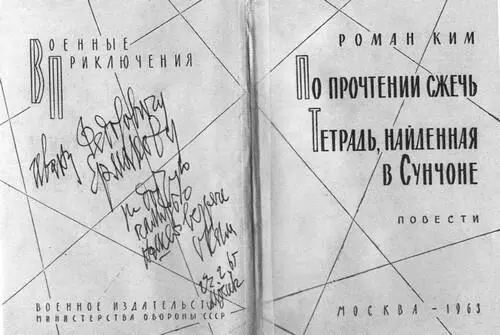 ВОЕННЫЕ
ПРИКЛЮЧЕНИЯ
Ивану Федоровичу
Ермакову
на
22.2.65
ВОЕННОЕ ИЗДАТЕЛЬСТВО
МИНИСТЕРСТВА ОБОРОНЫ СССР
РОМАН КИМ
ПО ПРОЧТЕНИИ СЖЕЧЬ
ТЕТРАДЬ, НАЙДЕННАЯ
В СУНЧОНЕ
ПОВЕСТИ
МОСКВА – 1963